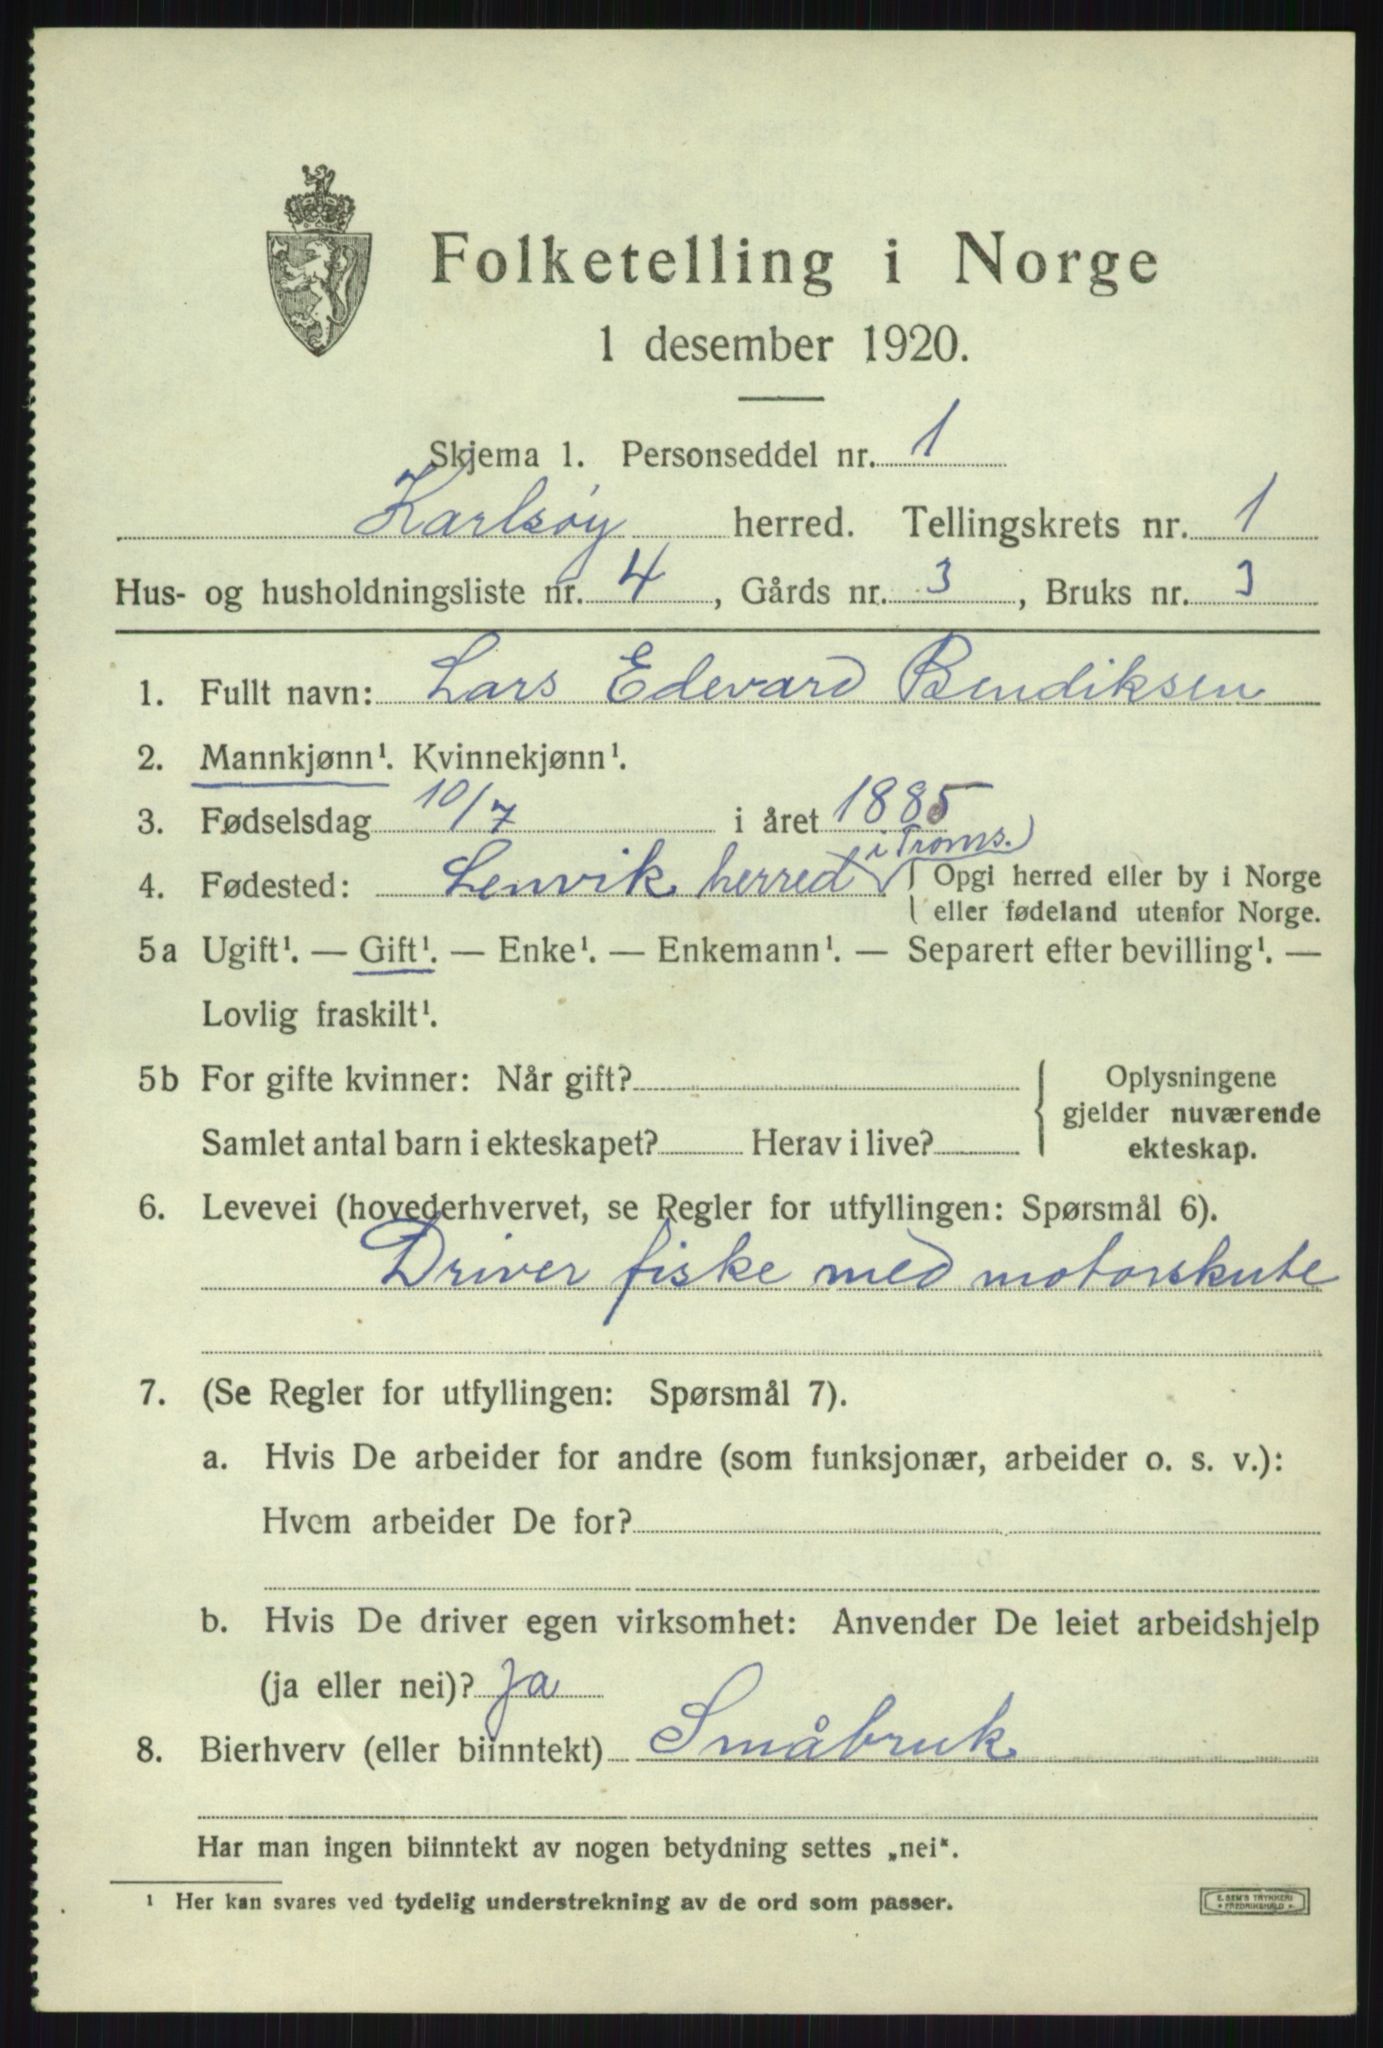 Folketelling i Norge
1 desember 1920.
Skjema 1. Personseddel nr. 1
Karlsøy herred. Tellingskrets nr. 1
Hus- og husholdningsliste nr. 4, Gårds nr. 3, Bruks nr. 3
1. Fullt navn: Lars Edevard Bendiksen
2. Mannkjønn¹. Kvinnekjønn¹.
3. Fødselsdag 10/7 i året 1885
i Troms.
4. Fødested: Lenvik herred { Opgi herred eller by i Norge
eller fødeland utenfor Norge.
5a Ugift¹. — Gift¹. — Enke¹. — Enkemann¹. — Separert efter bevilling¹. —
Lovlig fraskilt¹.
5b For gifte kvinner: Når gift? { Oplysningene
gjelder nuværende
Samlet antal barn i ekteskapet? Herav i live? ekteskap.
6. Levevei (hovederhvervet, se Regler for utfyllingen: Spørsmål 6).
Driver fiske med motorskute
7. (Se Regler for utfyllingen: Spørsmål 7).
a. Hvis De arbeider for andre (som funksjonær, arbeider o. s. v.):
Hvem arbeider De for?
b. Hvis De driver egen virksomhet: Anvender De leiet arbeidshjelp
(ja eller nei)? Ja
8. Bierhverv (eller biinntekt) Småbruk
Har man ingen biinntekt av nogen betydning settes „nei".
¹ Her kan svares ved tydelig understrekning av de ord som passer.
E. SEM'S TRYKKERI
FREDRIKSHALD